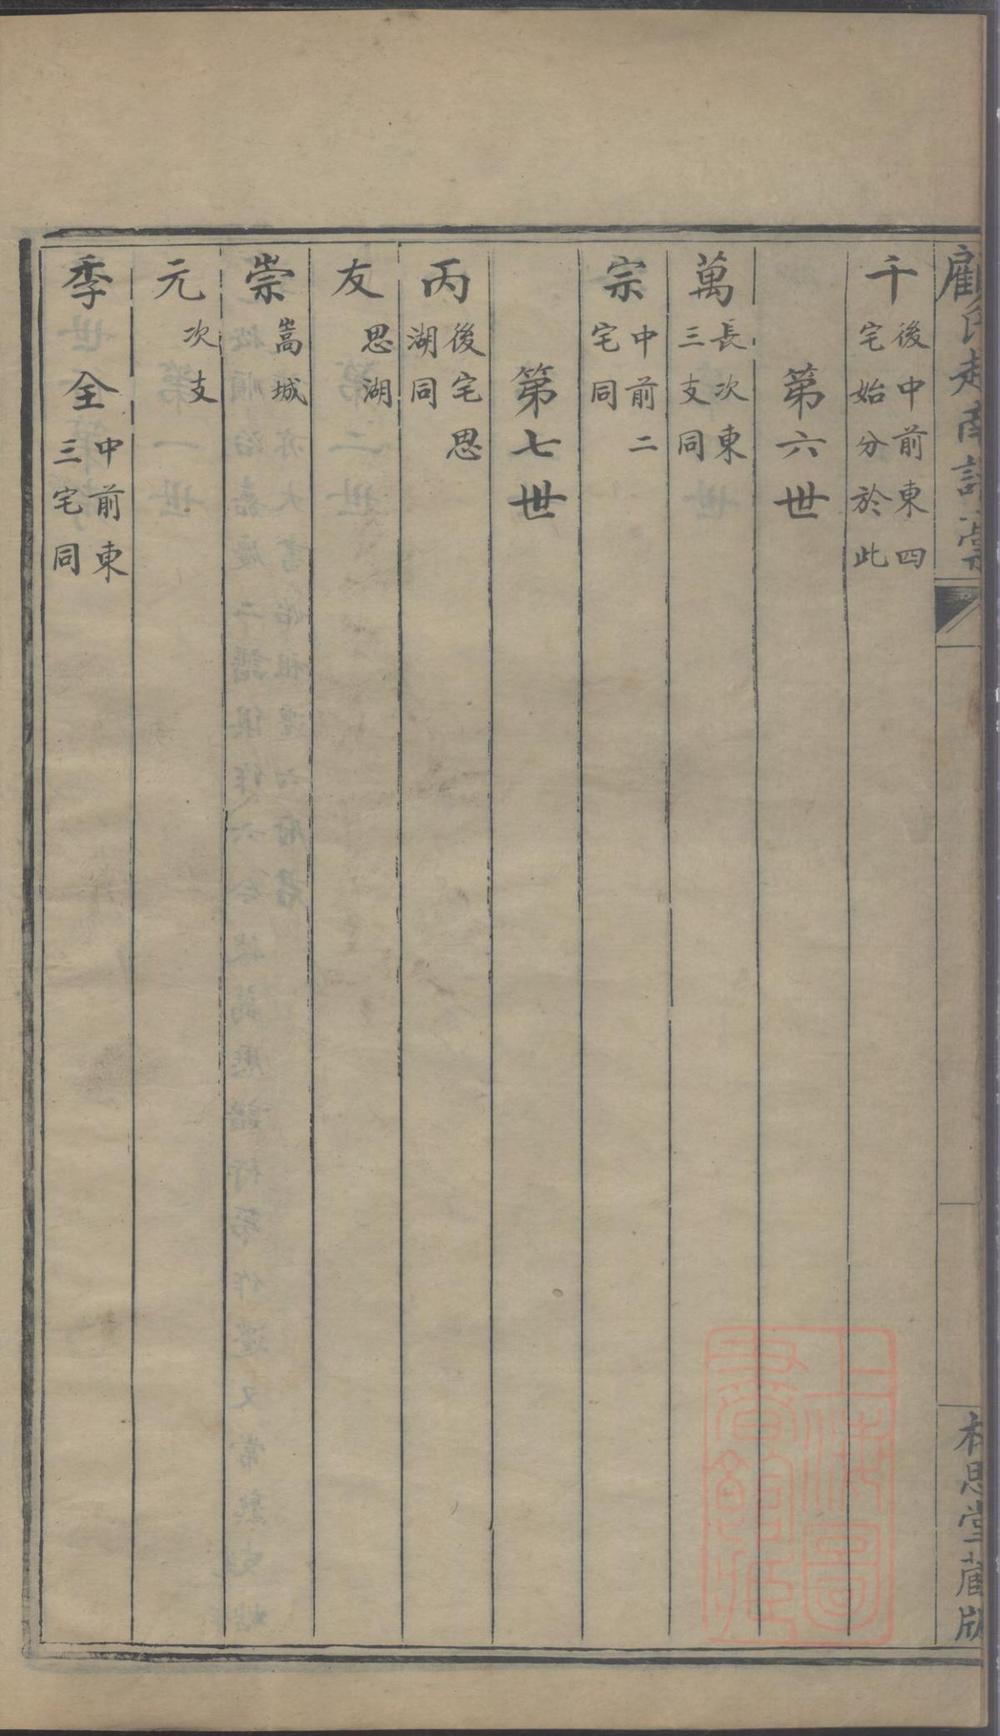 千 後中前東四
宅始分於此
第六世
萬 長次東
三支同
宗 中前二
宅同
第七世
丙 後宅思
湖同
友 思湖
崇 嵩城
元 次支
季全 中前東
三宅同
思堂藏版
上海圖
書館藏